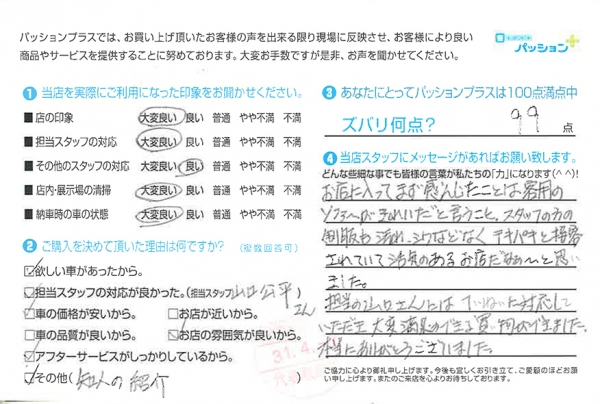 パッションプラスでは、お買い上げ頂いたお客様の声を出来る限り現場に反映させ、お客様により良い
商品やサービスを提供することに努めております。大変お手数ですが是非、お声を聞かせてください。
パッション
1 当店を実際にご利用になった印象をお聞かせください。
■ 店の印象 大変良い 良い 普通 やや不満 不満
■ 担当スタッフの対応 大変良い 良い 普通 やや不満 不満
■ その他のスタッフの対応 大変良い 良い 普通 やや不満 不満
■ 店内・展示場の清掃 大変良い 良い 普通 やや不満 不満
■ 納車時の車の状態 大変良い 良い 普通 やや不満 不満
2 ご購入を決めて頂いた理由は何ですか? (複数回答可)
欲しい車があったから。
担当スタッフの対応が良かった。(担当スタッフ山口公平さん
車の価格が安いから。 お店が近いから。
車の品質が良いから。 お店の雰囲気が良いから。
アフターサービスがしっかりしているから。
その他( 知人の紹介 )
31.4.
3 あなたにとってパッションプラスは100点満点中
ズバリ何点? 99 点
4 当店スタッフにメッセージがあればお願い致します。
どんな些細な事でも皆様の言葉が私たちの「力」になります(^^)!
お店に入ってまず感心したことは客用の
ソファーがきれいだと言うこと。スタッフの方の
制服も汚れ、シワなどなくテキパキと接客
されていて活気のあるお店だなぁ〜と思い
ました。
担当の山口さんにはていねいな対応して
いただき大変満足のできる買い物ができました。
本当にありがとうございました。
ご協力に心より御礼申し上げます。今後も宜しくお引き立て、ご愛顧のほどお願
い申し上げます。またのご来店を心よりお待ちしております。